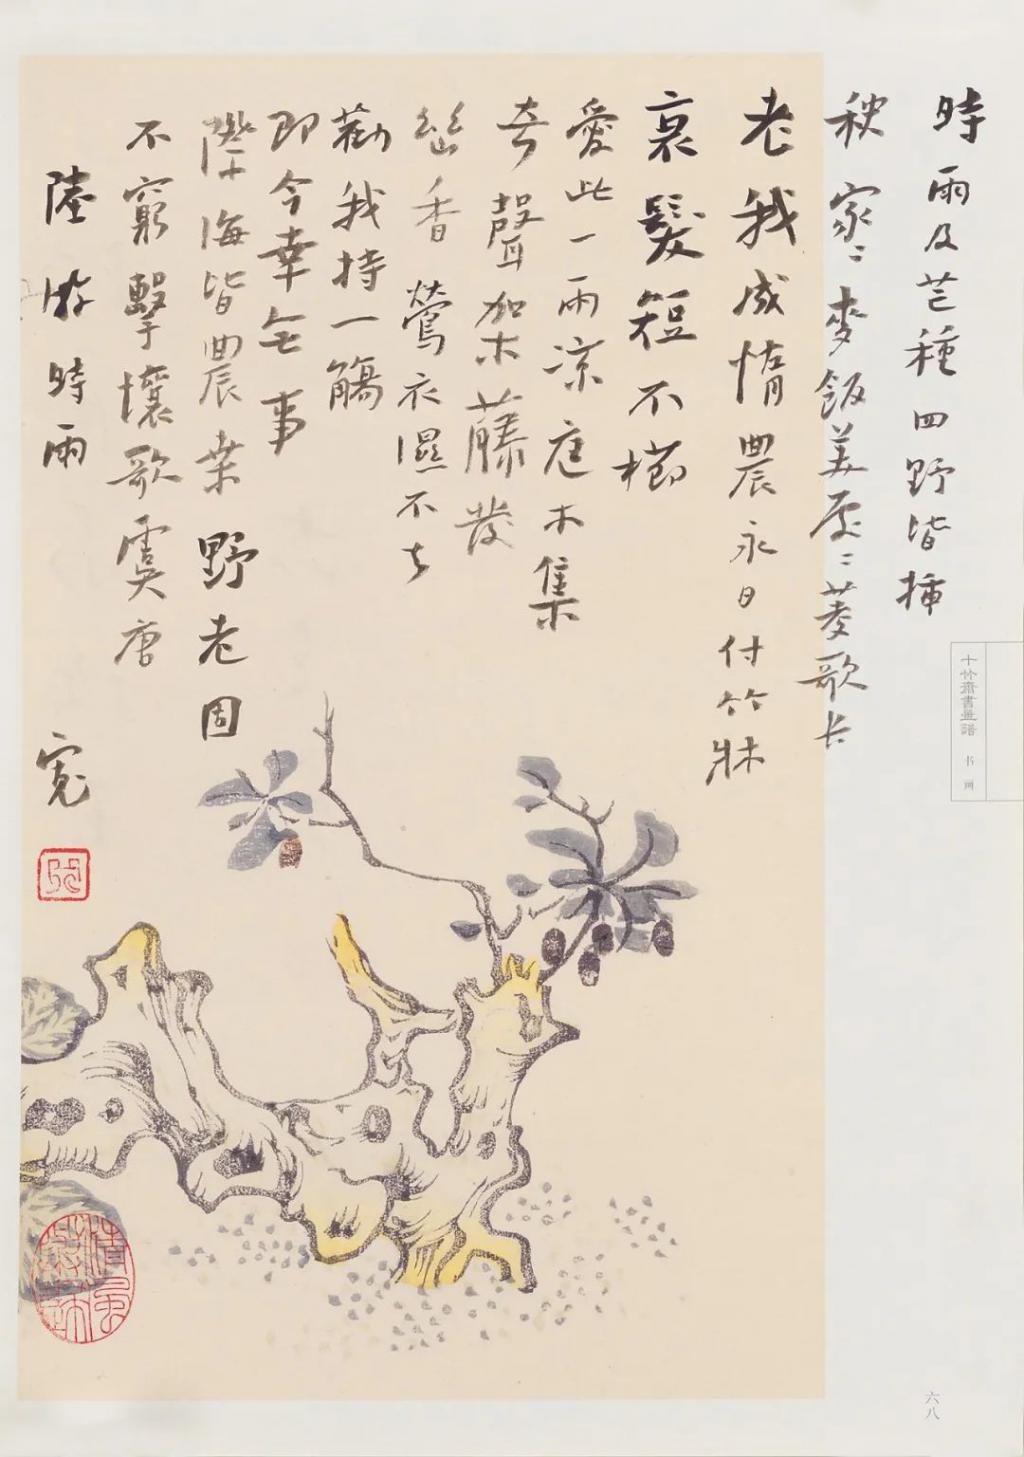 時雨及芒種四野皆插
秧家〻麥飯美處〻菱歌长
老我成惰農永日付竹牀
衰髮短不櫛
愛此一雨凉庭木集
奇聲架木藤發
幽香鶯衣濕不去
勸我持一觴
即今幸无事
際海皆農桒野老固
不窮擊壤歌虞唐
陸游時雨
寛
十竹齋書畫譜 书画
六八